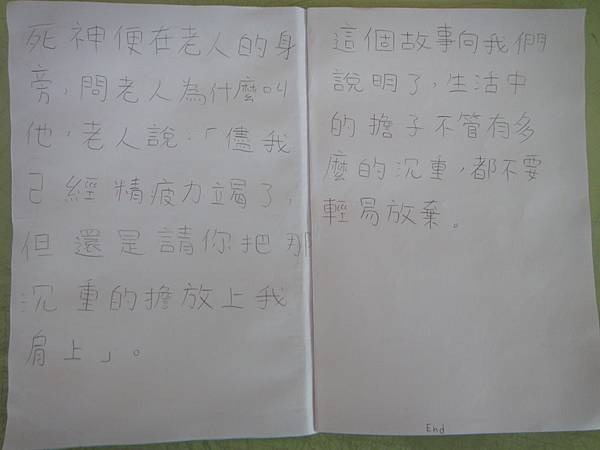 死神便在老人的身
旁，問老人為什麼叫
他，老人說：「儘我
已經精疲力竭了，
但還是請你把那
沉重的擔放上我
肩上」。
這個故事向我們
說明了，生活中
的擔子不管有多
麼的沉重，都不要
輕易放棄。
End